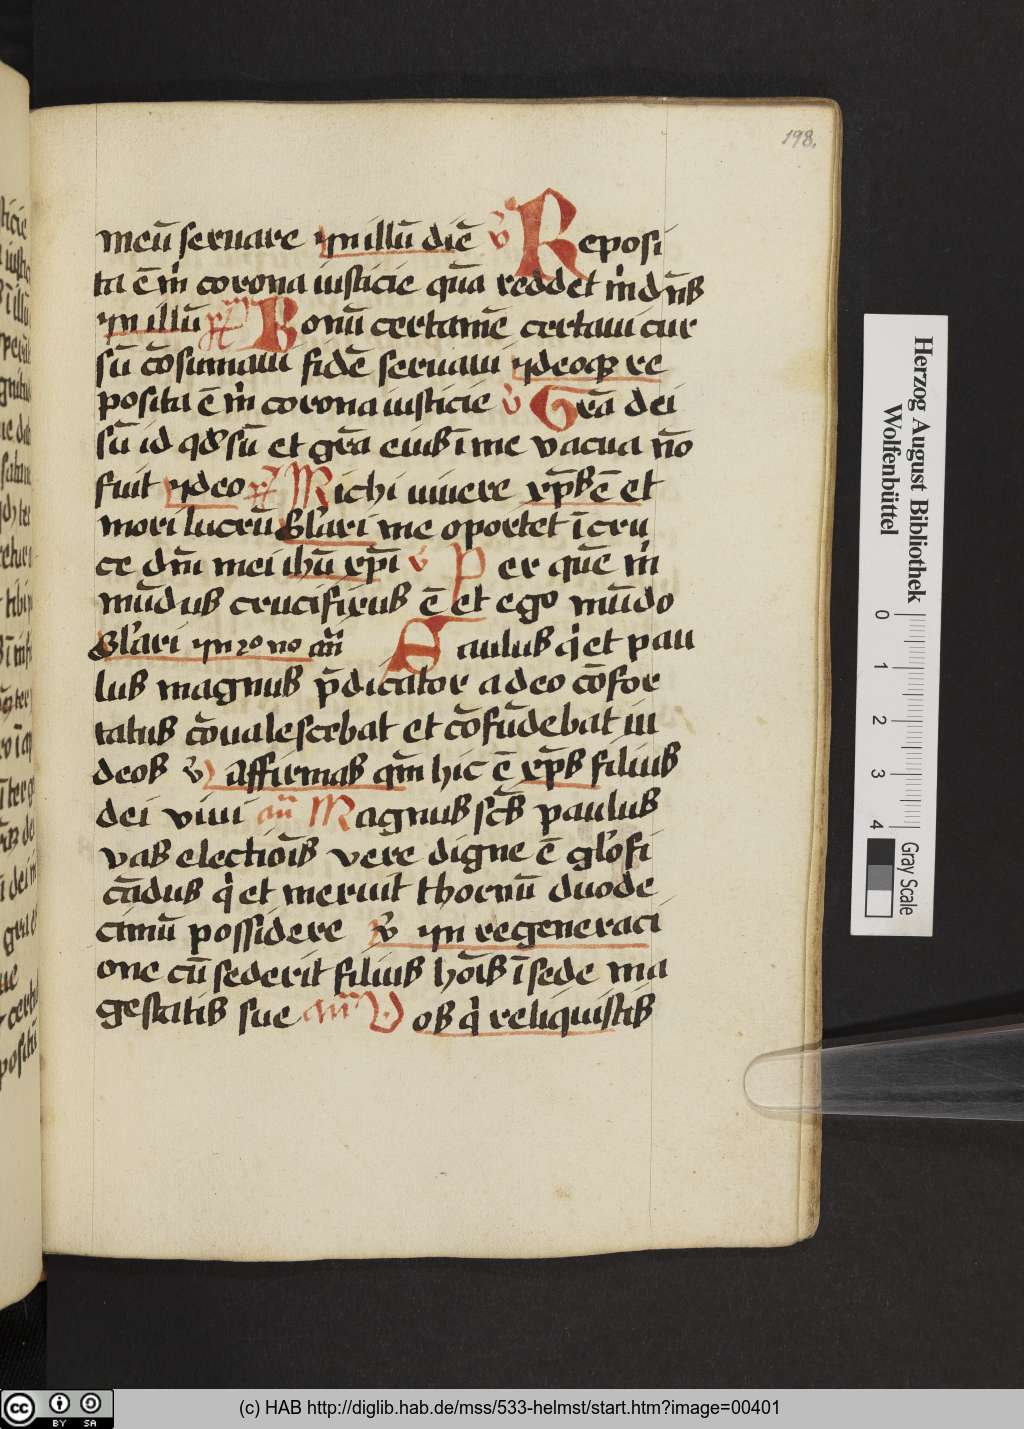 198.
meū seruare yn illū diē v̄ Reposi
ta ē m̄ corona iusticie quā reddet m̄ dn̄s
yn illū Bonū certamē certaui cur
sū cōsūmaui fidē seruaui ydeoq̄ re
posita ē m̄ corona iusticie v̄ Grā dei
sū id qd̄ sū et grā eius ī me vacua nō
fuit ydeo Michi uiuere xp̄s ē et
mori lucrū Gl'ari me oportet ī cru
ce dn̄i mei ihū xp̄i v̄ Per quē m̄
mūdus crucifixus ē et ego mūdo
Gl'ari yn 2o no an̄ Saulus q̄ et pau
lus magnus p̄dicator a deo cōfor
tatus cōualescebat et cōfūdebat iu
deos v̄ affirmas qm̄ hic ē xp̄s filius
dei viui an̄ Magnus sc̄s paulus
vas electiōis vere digne ē glōfi
cādus q̄ et meruit thornū duode
cimū possidere v̄ yn regeneraci
one cū sederit filius hōis ī sede ma
gestatis sue an̄ Vos q̄ reliquistis
Herzog August Bibliothek
Wolfenbüttel
0 1 2 3 4
Gray Scale
cc BY SA
(c) HAB http://diglib.hab.de/mss/533-helmst/start.htm?image=00401